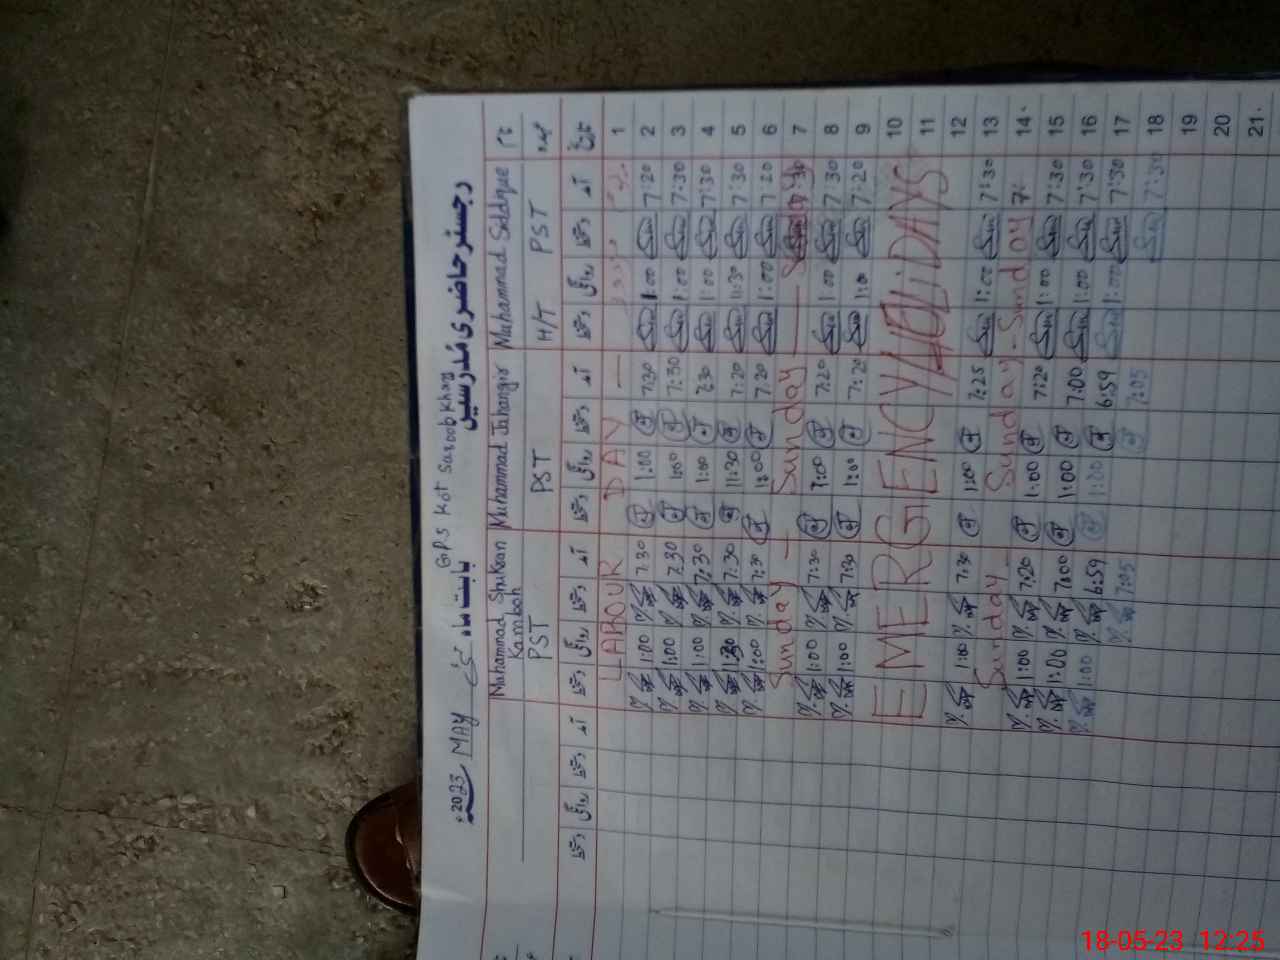 رجسٹر حاضری مدرسین
GPS Kot Saroob Khan
بابت ماہ مئی MAY 2023
نام Muhammad Siddique Muhammad Jahangir Muhammad Shukran Kamboh
عہدہ H/T PST PST PST
تاریخ آمد دستخط روانگی دستخط آمد دستخط روانگی دستخط آمد دستخط روانگی دستخط آمد دستخط روانگی دستخط
1 LABOUR DAY
2 7:20 1:00 7:30 1:00 7:30 1:00
3 7:30 1:00 7:30 1:00 7:30 1:00
4 7:30 1:00 7:30 1:00 7:30 1:00
5 7:30 11:30 7:20 11:30 7:30 11:30
6 7:20 1:00 7:20 1:00 7:30 1:00
7 Sunday - Sunday
8 7:30 1:00 7:20 1:00 7:30 1:00
9 7:20 1:00 7:20 1:00 7:30 1:00
10
11 EMERGENCY HOLiDAYS
12
13 7:30 1:00 7:25 1:00 7:30 1:00
14 7: Sunday - Sunday Sunday
15 7:30 1:00 7:20 1:00 7:20 1:00
16 7:30 1:00 7:00 1:00 7:00 1:00
17 7:30 1:00 6:59 1:00 6:59 1:00
18 7:30 7:05 7:05
19
20
21
18-05-23 12:25